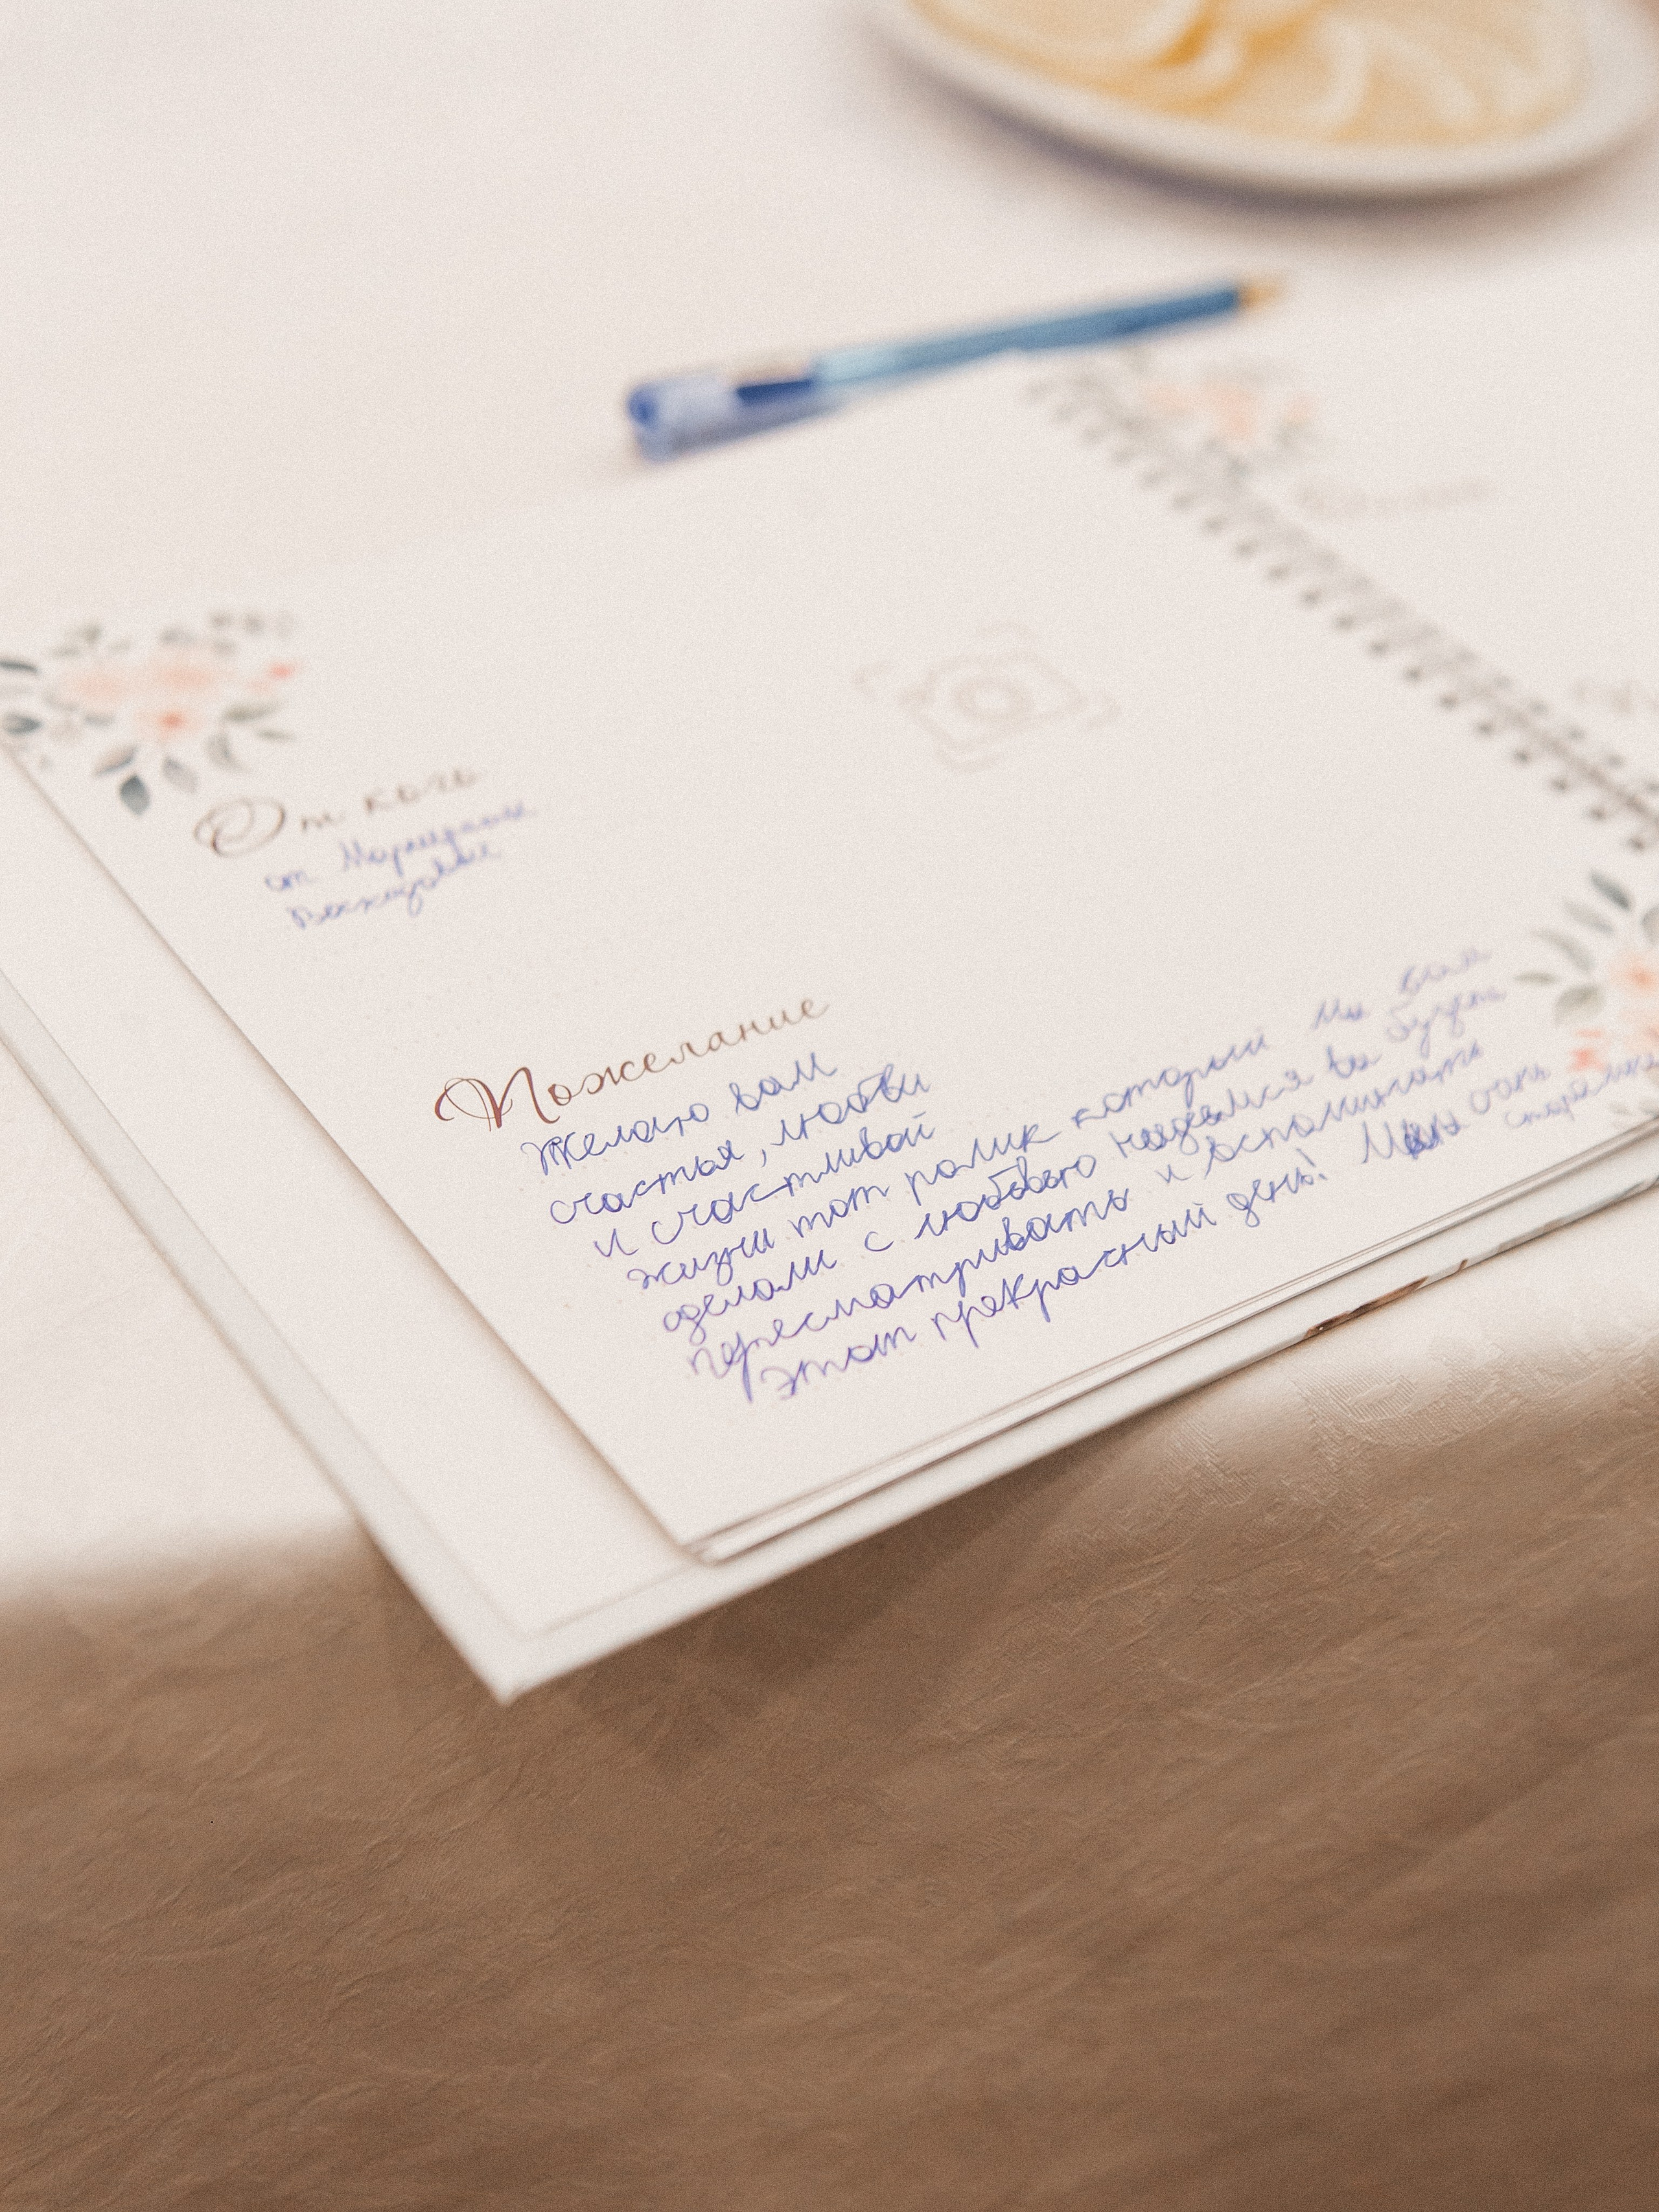 От кого
от
Пожелание
Желаю вам
счастья, любви
и счастливой
жизни тот ролик каторый мы вам
сделали с любовью надеемся вы будете
пересматривать и вспоминать
этот прекрасный день! Мы очень
старались